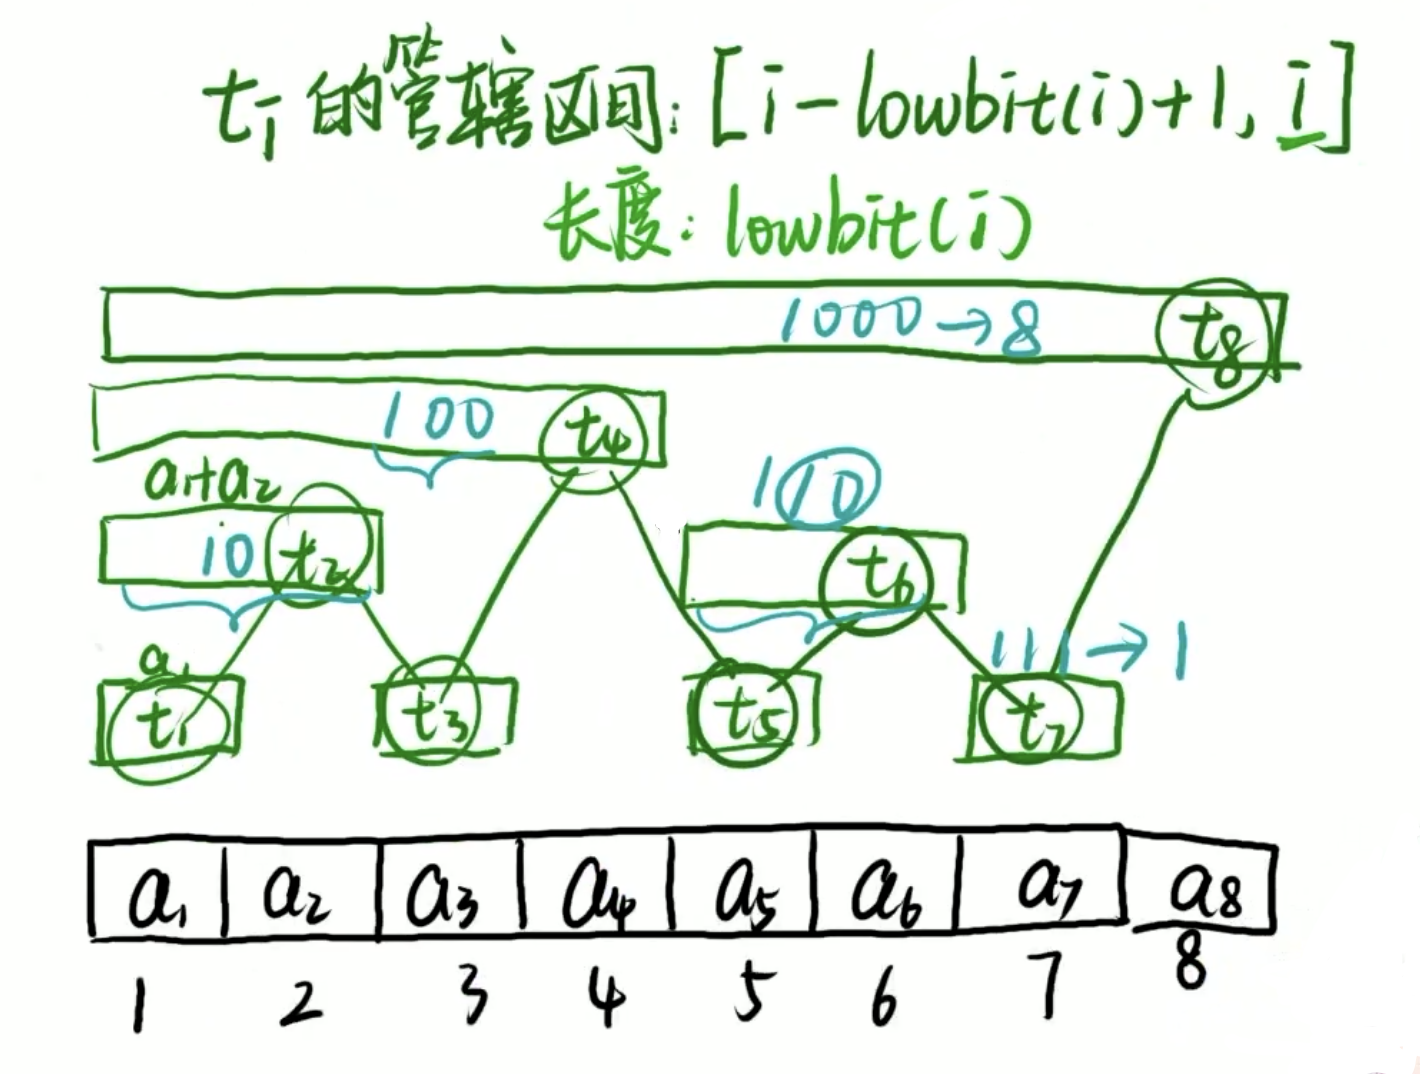 tᵢ的管辖区间: [i-lowbit(i)+1, i]
长度: lowbit(i)
1000→8 t₈
100 t₄
a₁+a₂
10 t₂
110
t₆
a₁
111→1
t₁ t₃ t₅ t₇
a₁ a₂ a₃ a₄ a₅ a₆ a₇ a₈
1 2 3 4 5 6 7 8